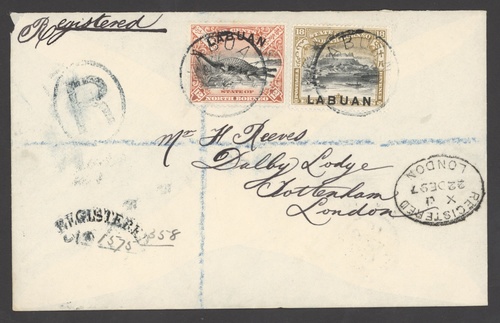 Registered
LABUAN
STATE OF
NORTH BORNEO
LABUAN
R
Mr H Reeves
Dalby Lodge
Tottenham
London
REGISTERED
LONDON
X
22 DE 97
REGISTERED
1575
358